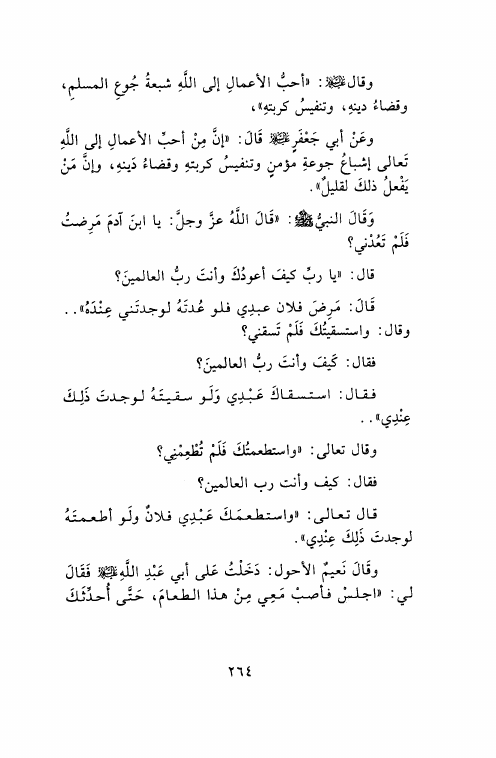 وقال ﷺ: «أحبُّ الأعمالِ إلى اللَّهِ شبعةُ جُوعِ المسلمِ،
وقضاءُ دينهِ، وتنفيسُ كربتهِ»،
وعَنْ أبي جَعْفَرٍ قَالَ: «إنَّ مِنْ أحبِّ الأعمالِ إلى اللَّهِ
تَعالى إشباعُ جوعةِ مؤمنٍ وتنفيسُ كربتهِ وقضاءُ دَينهِ، وإنَّ مَنْ
يَفْعلُ ذلكَ لقليلٌ».
وَقَالَ النبيُّ ﷺ: «قَالَ اللَّهُ عزَّ وجلَّ: يا ابنَ آدمَ مَرِضتُ
فَلَمْ تَعُدْني؟
قال: «يا ربِّ كيفَ أعودُكَ وأنتَ ربُّ العالمينَ؟
قَالَ: مَرِضَ فلان عبدِي فلو عُدتَهُ لوجدتَني عِنْدَهُ»..
وقال: واستسقيتُكَ فَلَمْ تَسقني؟
فقال: كَيفَ وأنتَ ربُّ العالمينَ؟
فقال: استسقاكَ عَبْدِي وَلَو سقيتَهُ لوجدتَ ذَلِكَ
عِنْدِي»..
وقال تعالى: «واستطعمتُكَ فَلَمْ تُطْعِمْنِي؟
فقال: كيف وأنت رب العالمين؟
قال تعالى: «واستطعمَكَ عَبْدِي فلانٌ ولَو أطعمتَهُ
لوجدتَ ذَلِكَ عِنْدِي».
وقَالَ نَعيمُ الأحول: دَخَلْتُ عَلى أبي عَبْدِ اللَّهِ فَقَالَ
لي: «اجلسْ فأصبْ مَعِي مِنْ هذا الطعامَ، حَتَّى أُحدِّثَكَ
٢٦٤